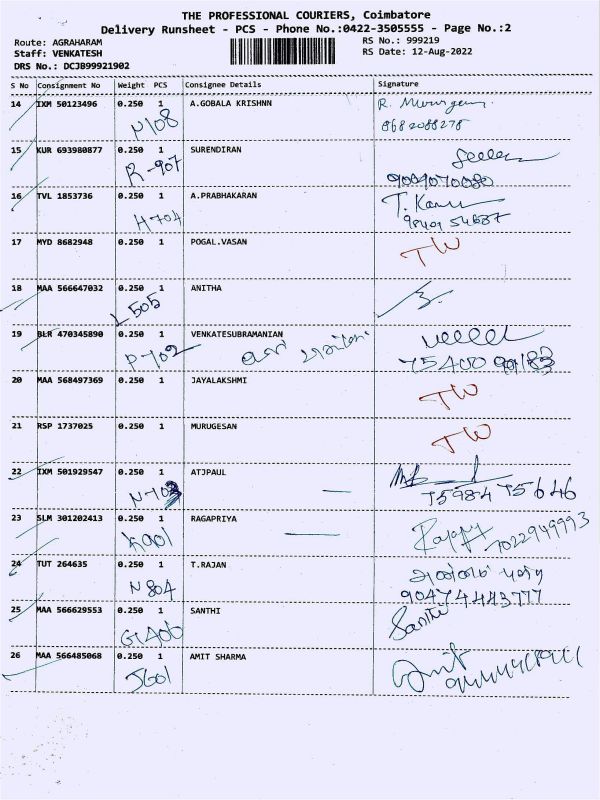 THE PROFESSIONAL COURIERS, Coimbatore
Delivery Runsheet - PCS - Phone No.:0422-3505555 - Page No.:2
Route: AGRAHARAM RS No.: 999219
Staff: VENKATESH RS Date: 12-Aug-2022
DRS No.: DCJB99921902
S No Consignment No Weight PCS Consignee Details Signature
14 IXM 50123496 0.250 1 A.GOBALA KRISHNN R. Murugesan
N108 8682088278
15 KUR 693980877 0.250 1 SURENDIRAN
R-907 9009070080
16 TVL 1853736 0.250 1 A.PRABHAKARAN
H704
17 MYD 8682948 0.250 1 POGAL.VASAN TW
18 MAA 566647032 0.250 1 ANITHA
L505
19 BLR 470345890 0.250 1 VENKATESUBRAMANIAN
P-702
20 MAA 568497369 0.250 1 JAYALAKSHMI TW
21 RSP 1737025 0.250 1 MURUGESAN TW
22 IXM 501929547 0.250 1 ATJPAUL
N-703 75984 75646
23 SLM 301202413 0.250 1 RAGAPRIYA 7022949993
K901
24 TUT 264635 0.250 1 T.RAJAN
N804 90474443777
25 MAA 566629553 0.250 1 SANTHI Santhi
G1406
26 MAA 566485068 0.250 1 AMIT SHARMA Amit
J601